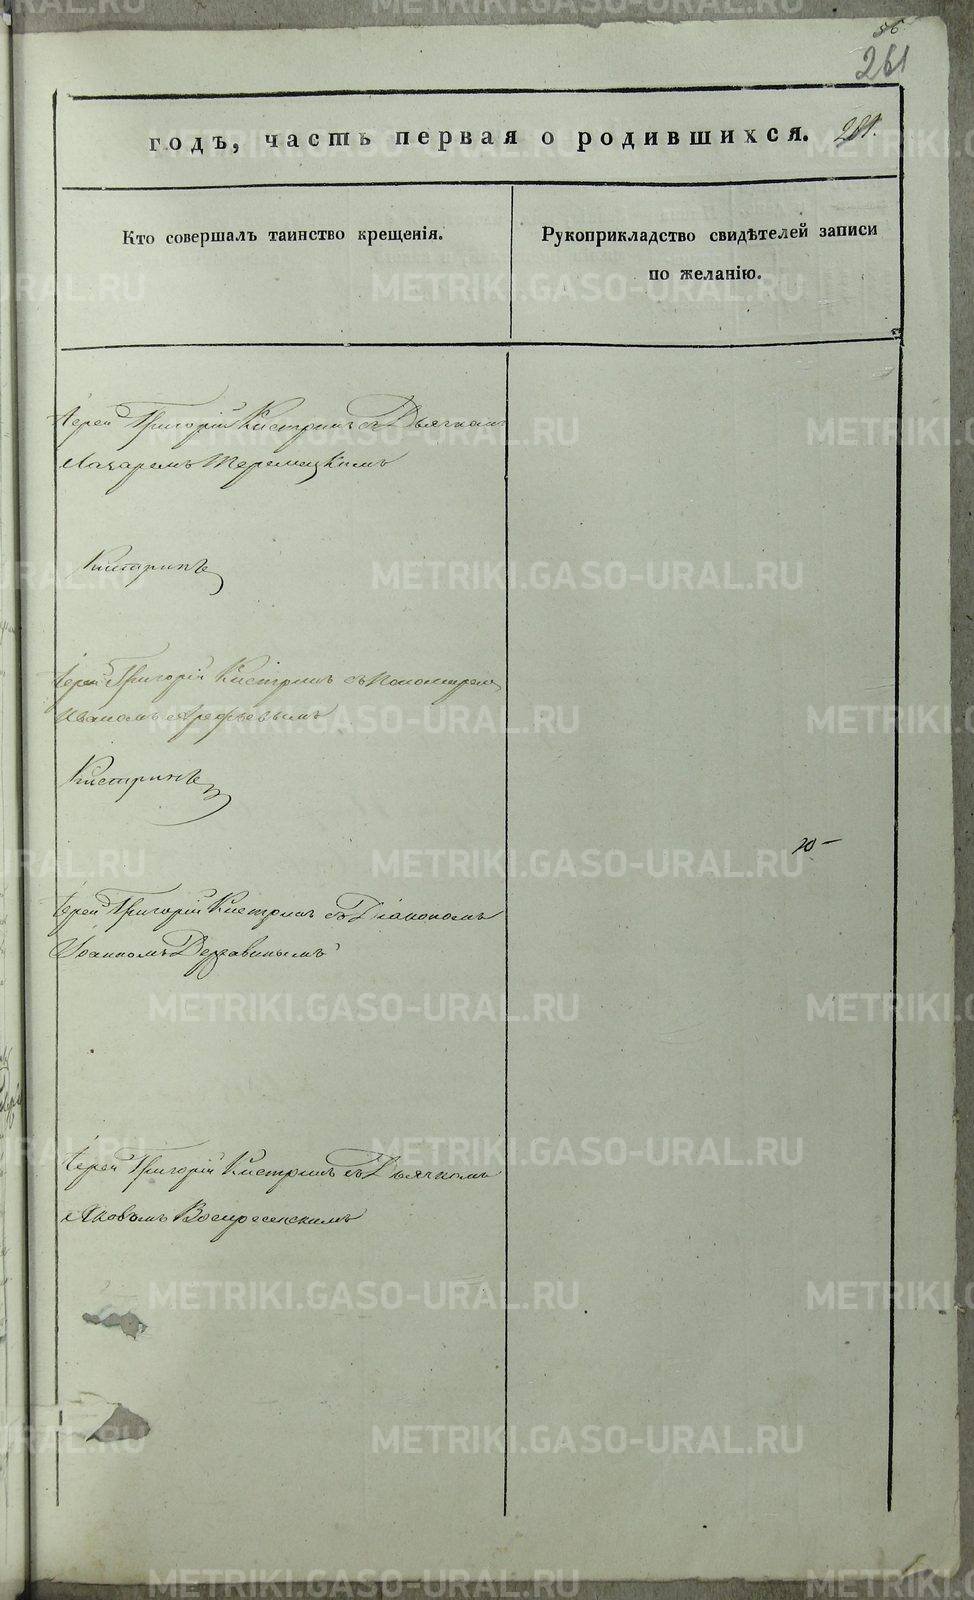 56
261
годъ, часть первая о родившихся. 281.
Кто совершалъ таинство крещенія.
Рукоприкладство свидѣтелей записи
по желанію.
Іерей Григорій Кистринъ съ Дьячкомъ
Лазаремъ
Кистринъ
Іерей Григорій Кистринъ съ Пономаремъ
Иваномъ Арефьевымъ
Кистринъ
Іерей Григорій Кистринъ съ Діакономъ
Іоанномъ Державинымъ
Іерей Григорій Кистринъ съ Дьячкомъ
Яковомъ Воскресенскимъ
METRIKI.GASO-URAL.RU